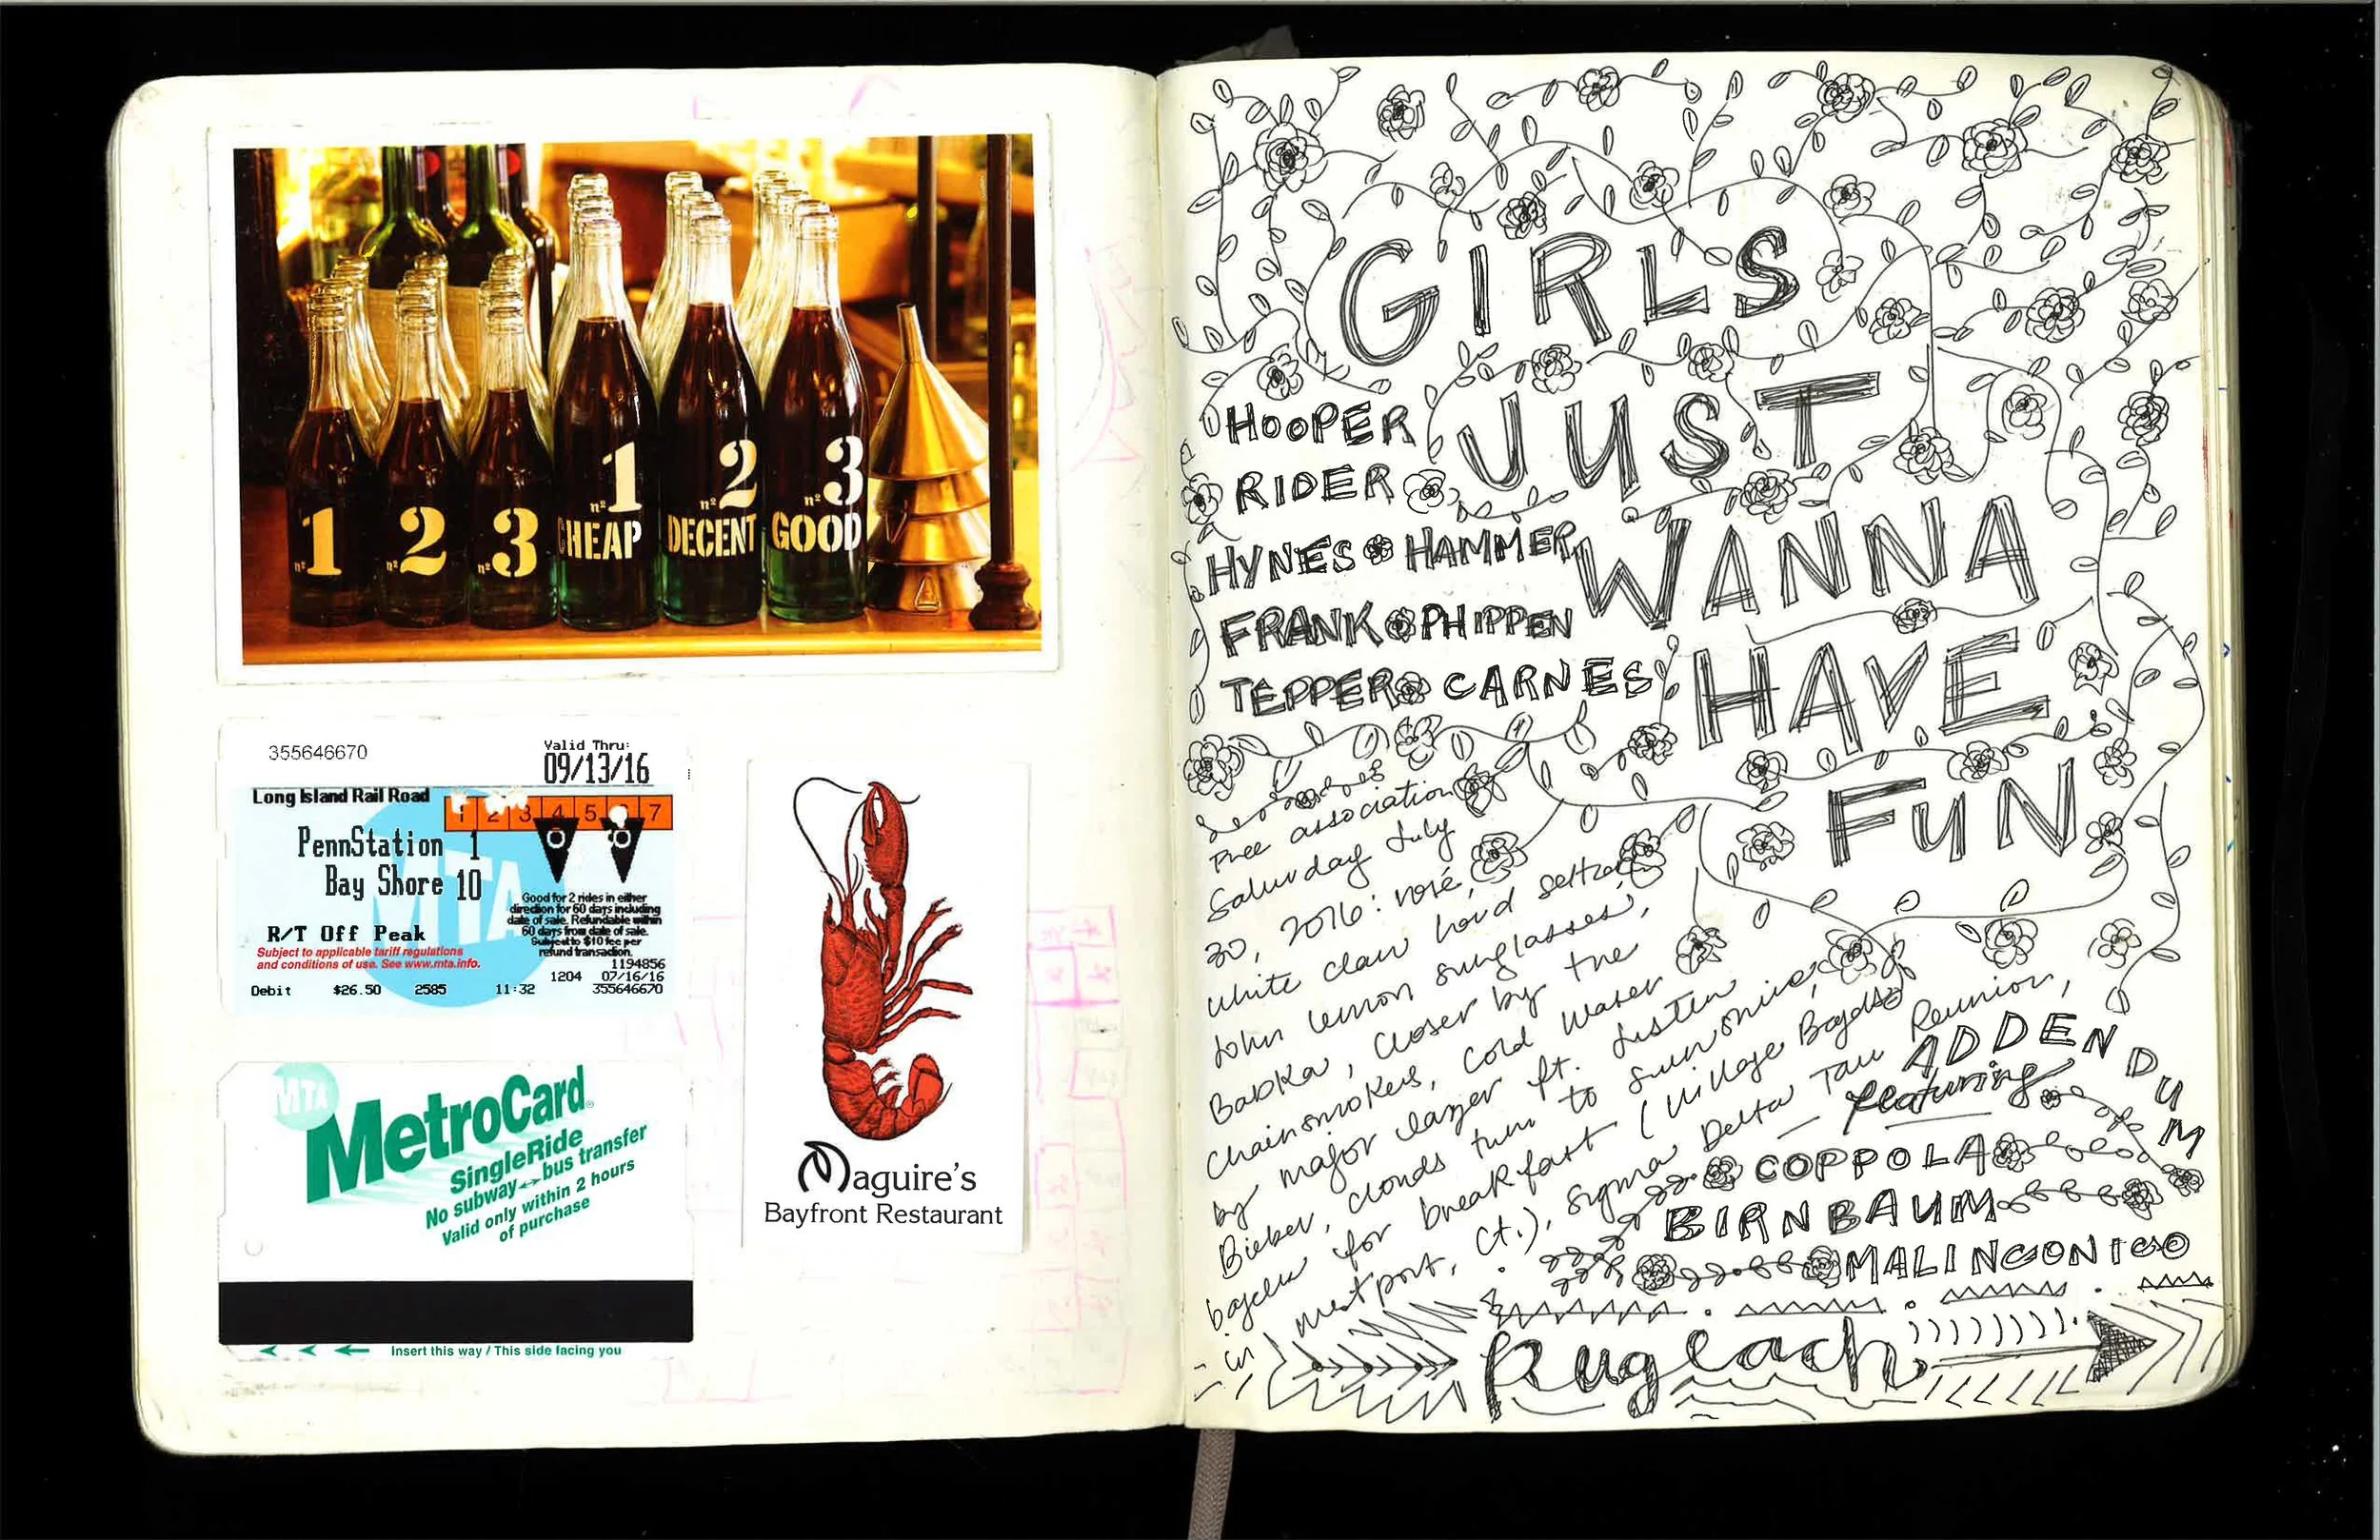 nº1
nº2
nº3
nº1
CHEAP
nº2
DECENT
nº3
GOOD
355646670
Valid Thru:
09/13/16
Long Island Rail Road
1 2 3 4 5 6 7
PennStation 1
Bay Shore 10
R/T Off Peak
Subject to applicable tariff regulations
and conditions of use. See www.mta.info.
Good for 2 rides in either
direction for 60 days including
date of sale. Refundable within
60 days from date of sale.
Subject to $10 fee per
refund transaction.
1194856
1204 07/16/16
Debit $26.50 2585 11:32 355646670
MTA
MTA
MetroCard®
SingleRide
No subway↔bus transfer
Valid only within 2 hours
of purchase
Insert this way / This side facing you
Maguire's
Bayfront Restaurant
GIRLS
JUST
WANNA
HAVE
FUN
HOOPER
RIDER
HYNES HAMMER
FRANK PHIPPEN
TEPPER CARNES
Free association
Saturday July
30, 2016: rosé,
white claw hard seltzer,
John lemon sunglasses,
Babka, Closer by the
Chainsmokers, Cold Water
by major lazer ft. Justin
Bieber, clouds turn to sunshine,
bagels for breakfast (Village Bagels
in westport, Ct.), Sigma Delta Tau Reunion,
ADDENDUM
— featuring —
COPPOLA
BIRNBAUM
MALINCONICO
Rugelach